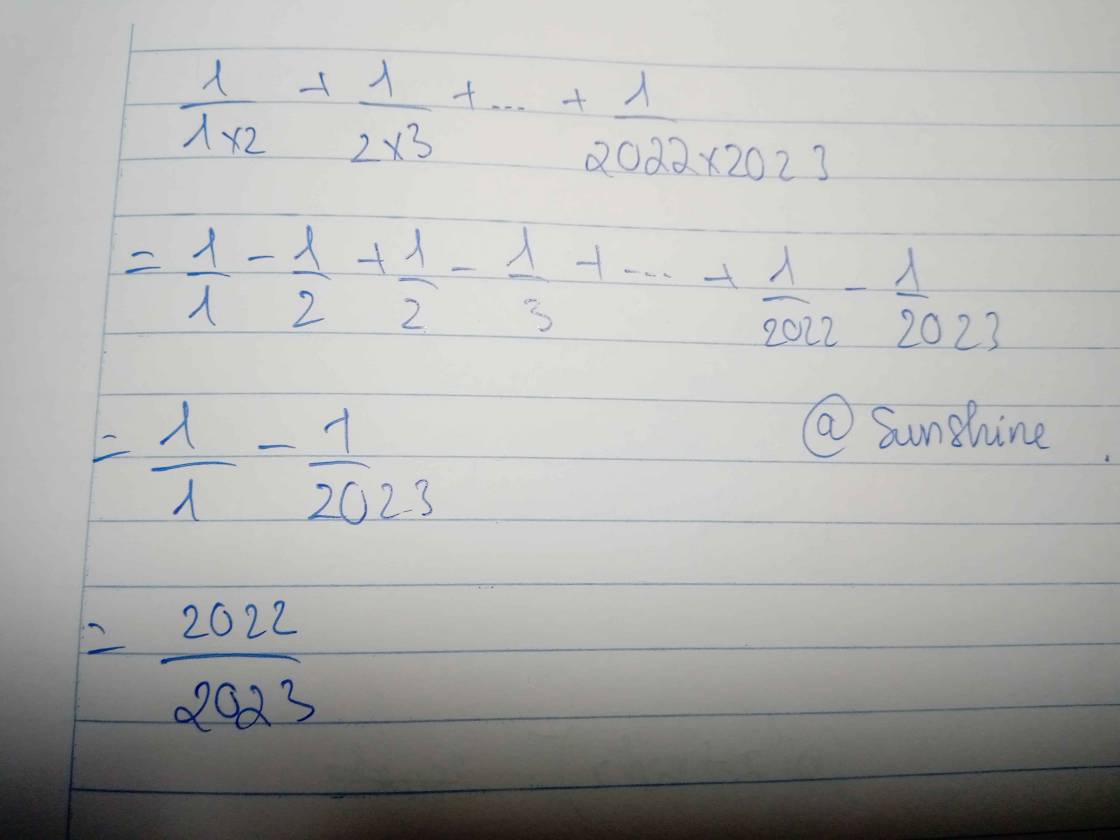 1/1×2 + 1/2×3 + ... + 1/2022×2023
= 1/1 - 1/2 + 1/2 - 1/3 + ... + 1/2022 - 1/2023
= 1/1 - 1/2023
@ Sunshine
= 2022/2023